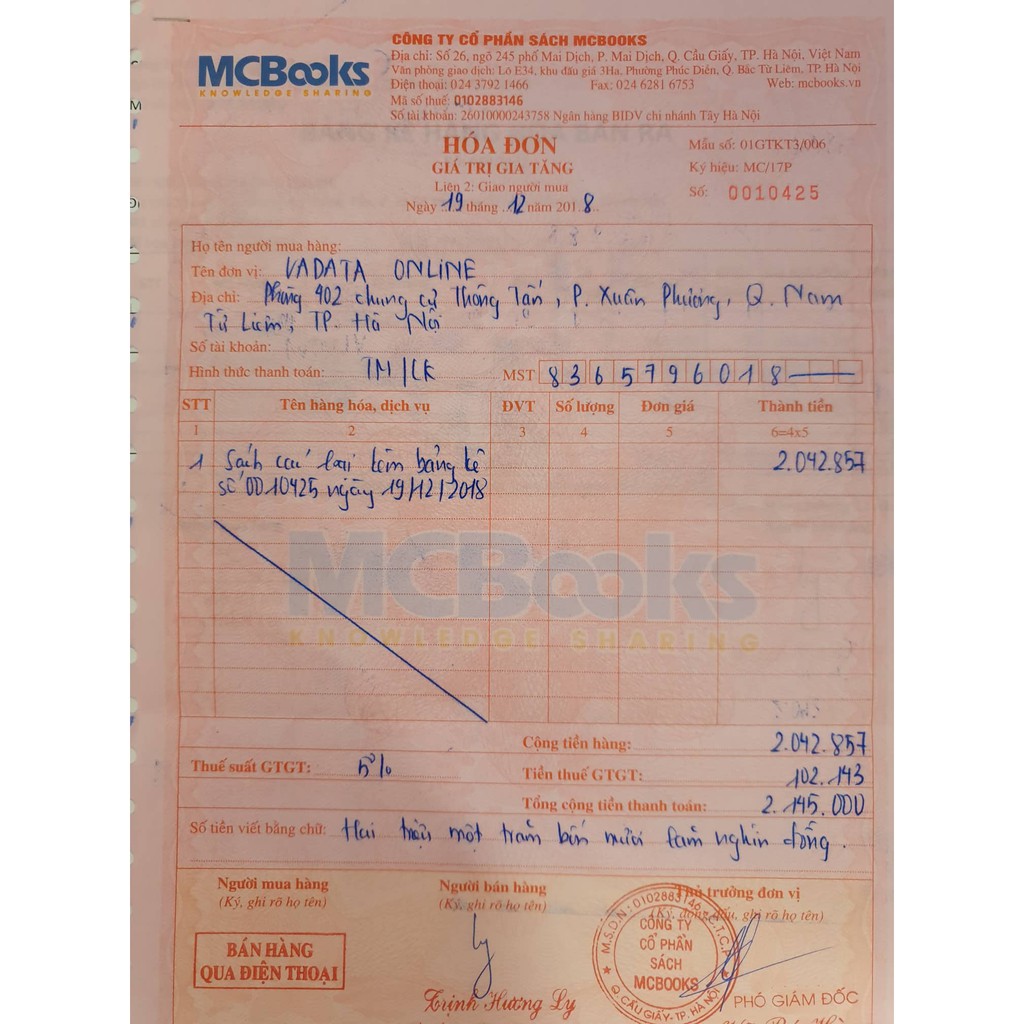 CÔNG TY CỔ PHẦN SÁCH MCBOOKS
MCBooks
KNOWLEDGE SHARING
Địa chỉ: Số 26, ngõ 245 phố Mai Dịch, P. Mai Dịch, Q. Cầu Giấy, TP. Hà Nội, Việt Nam
Văn phòng giao dịch: Lô E34, khu đấu giá 3Ha, Phường Phúc Diễn, Q. Bắc Từ Liêm, TP. Hà Nội
Điện thoại: 024 3792 1466 Fax: 024 6281 6753 Web: mcbooks.vn
Mã số thuế: 0102883146
Số tài khoản: 26010000243758 Ngân hàng BIDV chi nhánh Tây Hà Nội
HÓA ĐƠN
GIÁ TRỊ GIA TĂNG
Liên 2: Giao người mua
Ngày 19 tháng 12 năm 2018
Mẫu số: 01GTKT3/006
Ký hiệu: MC/17P
Số: 0010425
Họ tên người mua hàng:
Tên đơn vị: VADATA ONLINE
Địa chỉ: Phòng 402 chung cư Thông Tấn, P. Xuân Phương, Q. Nam
Từ Liêm, TP. Hà Nội
Số tài khoản:
Hình thức thanh toán: TM/CK MST 8365796018
STT Tên hàng hóa, dịch vụ ĐVT Số lượng Đơn giá Thành tiền
1 2 3 4 5 6=4x5
1 Sách các loại kèm bảng kê 2.042.857
số 0010425 ngày 19/12/2018
MCBooks
KNOWLEDGE SHARING
Cộng tiền hàng: 2.042.857
Thuế suất GTGT: 5% Tiền thuế GTGT: 102.143
Tổng cộng tiền thanh toán: 2.145.000
Số tiền viết bằng chữ: Hai triệu một trăm bốn mươi lăm nghìn đồng.
Người mua hàng Người bán hàng Thủ trưởng đơn vị
(Ký, ghi rõ họ tên) (Ký, ghi rõ họ tên) (Ký, đóng dấu, ghi rõ họ tên)
BÁN HÀNG
QUA ĐIỆN THOẠI
Ly
Trịnh Hương Ly
M.S.D.N: 0102883146 - C.T.C.P
CÔNG TY
CỔ PHẦN
SÁCH
MCBOOKS
Q. CẦU GIẤY - TP. HÀ NỘI
PHÓ GIÁM ĐỐC